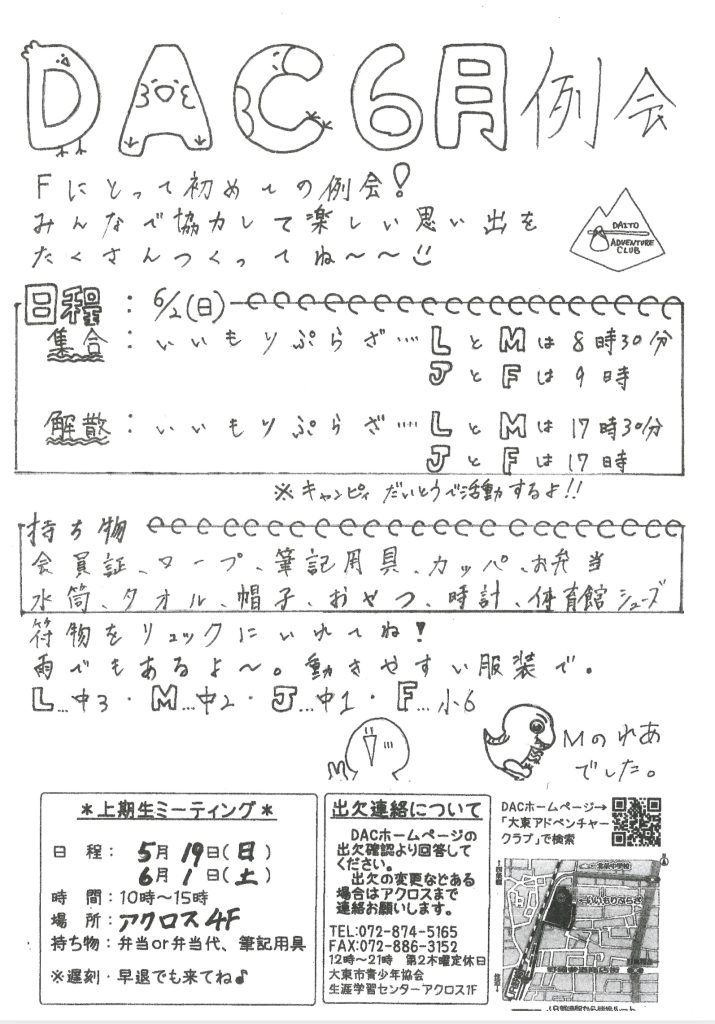 DAC6月例会
Fにとって初めての例会!
みんなで協力して楽しい思い出を
たくさんつくってね〜〜
DAITO
ADVENTURE
CLUB
日程：6/2(日)
集合：いいもりぷらざ…LとMは8時30分
JとFは9時
解散：いいもりぷらざ…LとMは17時30分
JとFは17時
※キャンピィだいとうで活動するよ!!
持ち物
会員証、ロープ、筆記用具、カッパ、お弁当
水筒、タオル、帽子、おやつ、時計、体育館シューズ
荷物をリュックにいれてね!
雨でもあるよ〜。動きやすい服装で。
L…中3・M…中2・J…中1・F…小6
Mのれあ
でした。
＊上期生ミーティング＊
日　程：5月19日(日)
6月1日(土)
時　間：10時〜15時
場　所：アクロス4F
持ち物：弁当or弁当代、筆記用具
※遅刻・早退でも来てね♪
出欠連絡について
DACホームページの
出欠確認より回答して
ください。
出欠の変更などある
場合はアクロスまで
連絡お願いします。
TEL:072-874-5165
FAX:072-886-3152
12時〜21時　第2木曜定休日
大東市青少年協会
生涯学習センターアクロス1F
DACホームページ→
「大東アドベンチャー
クラブ」で検索
いいもりぷらざ